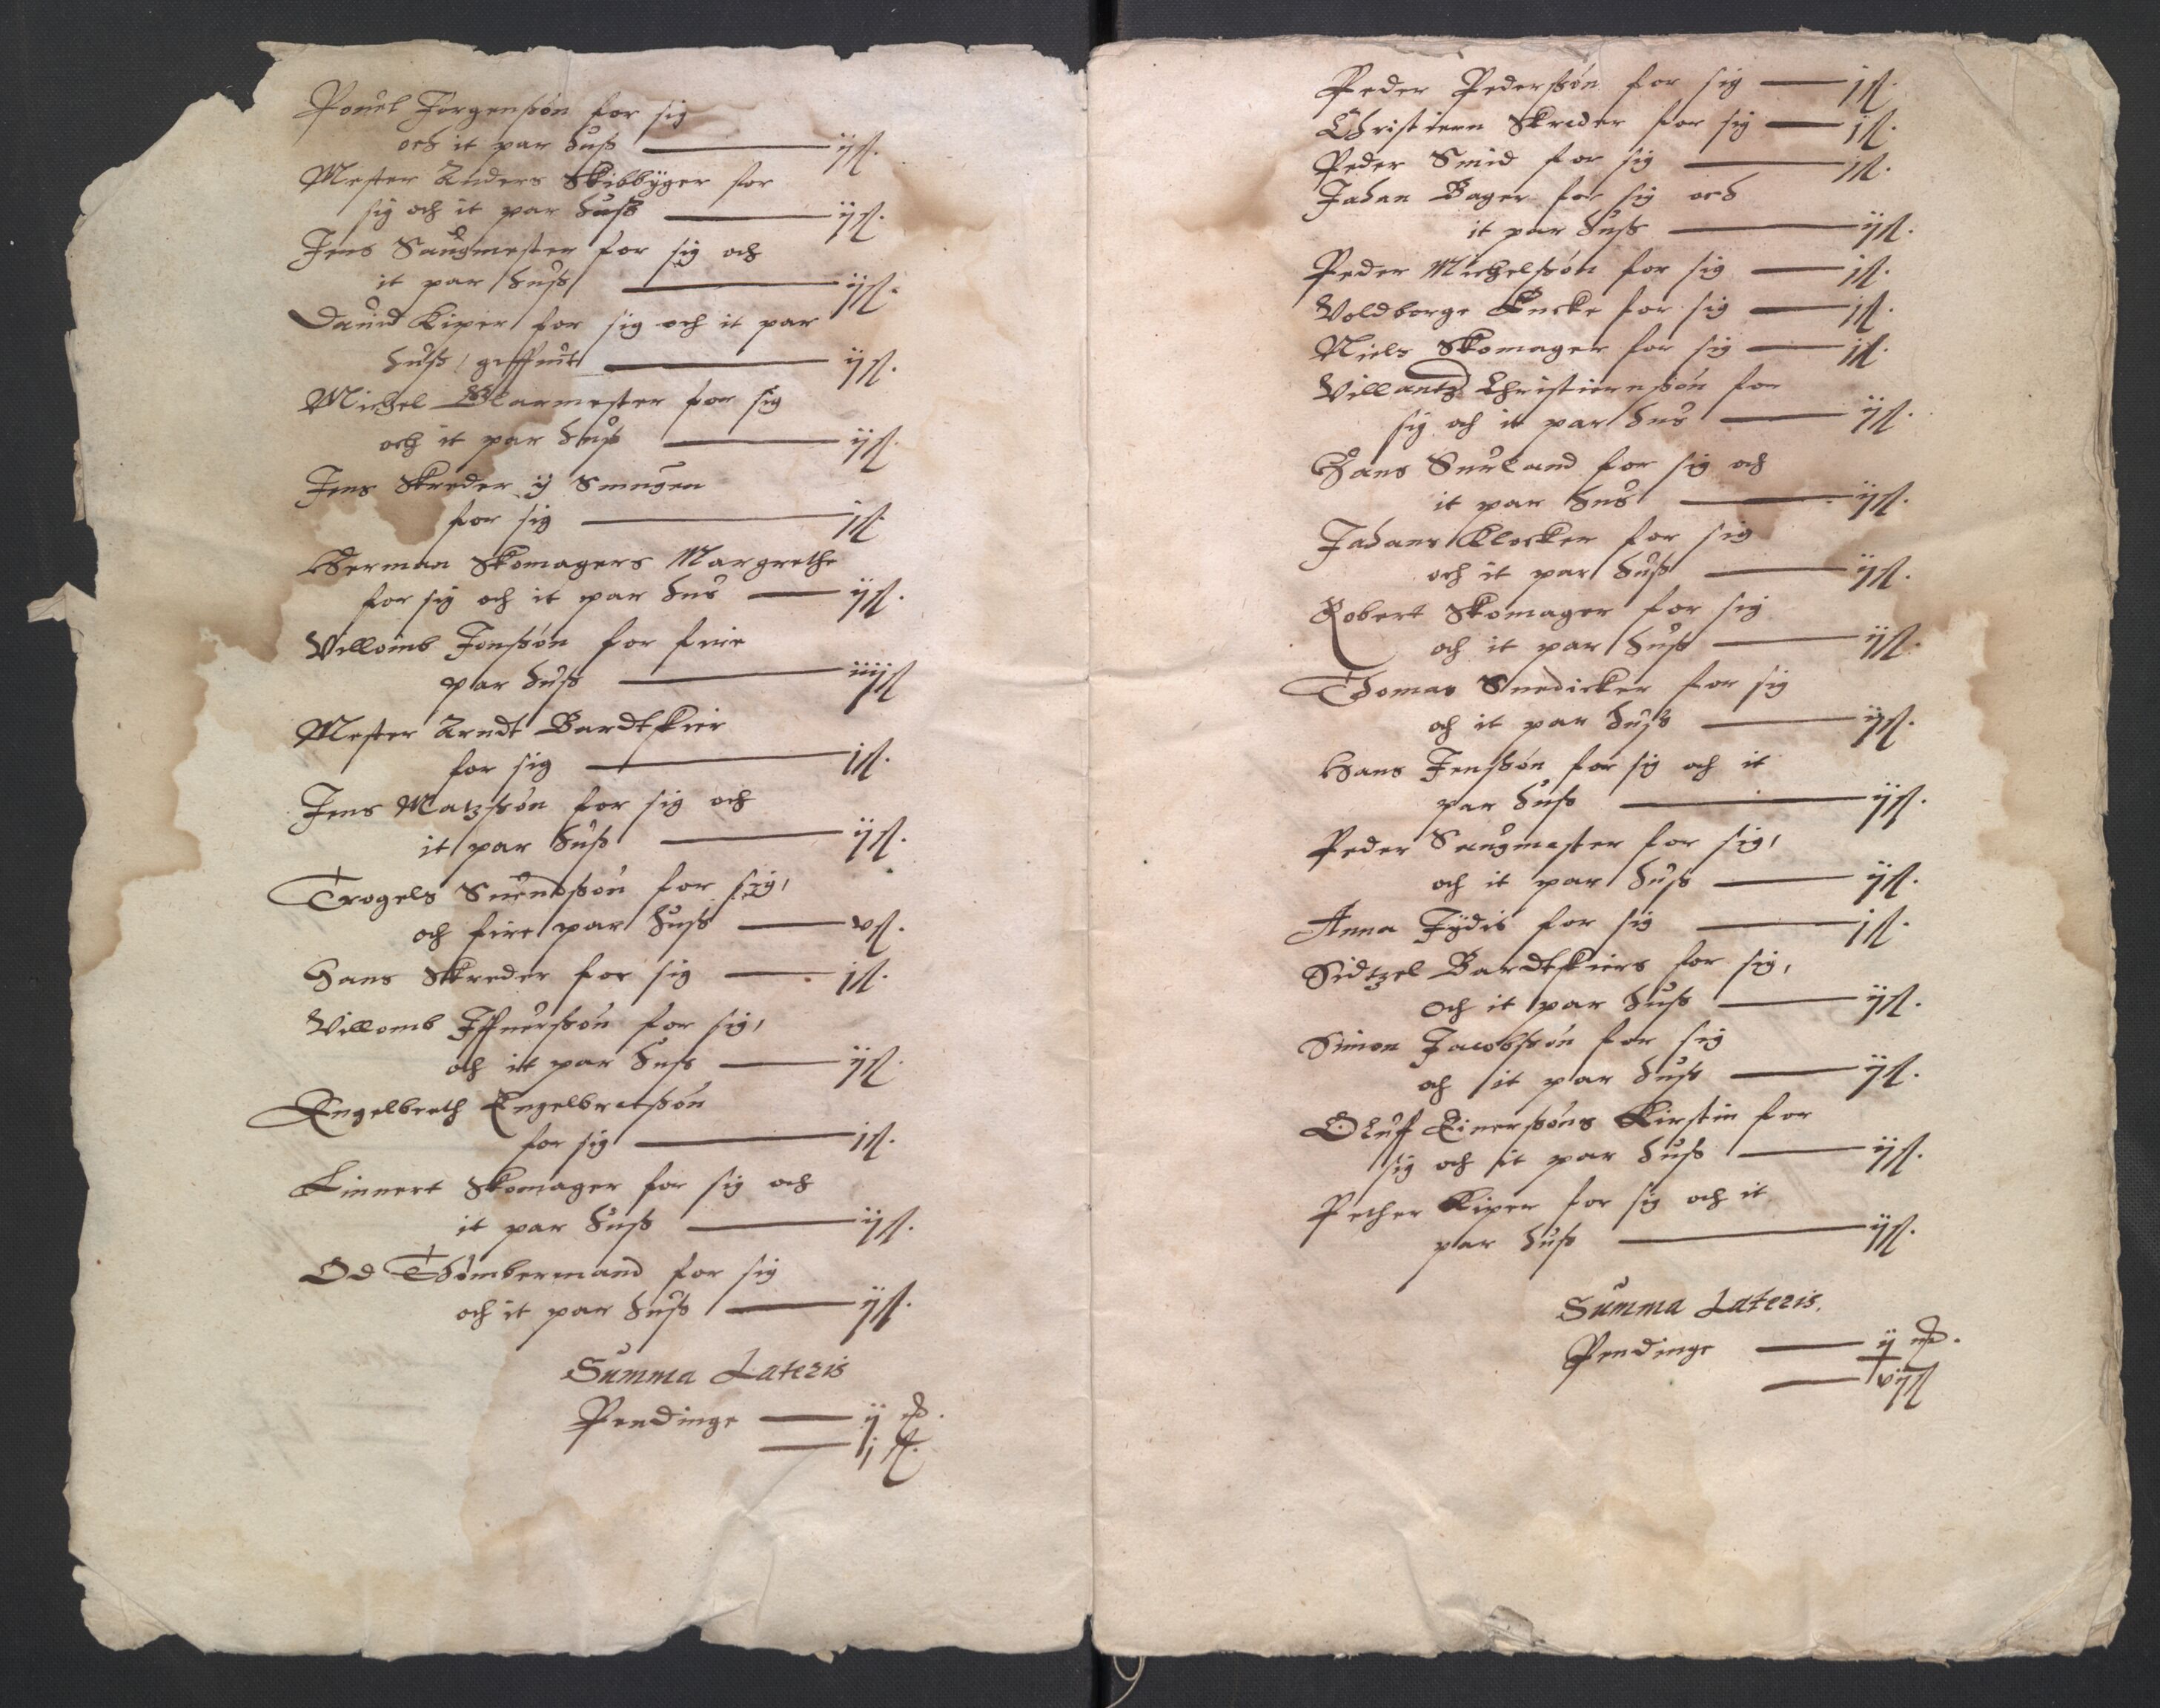 Pouel Jørgenssøn for sig
och it par huss —— ij ß.
Mester Anders Skibbÿger for
sig och it par huss —— ij ß.
Jens Saugmester for sig och
it par huss —— ij ß.
Dauid Kiper for sig och it par
huss, —— ij ß.
Michel Murmester for sig
och it par huss —— ij ß.
Jens Skreder ij Smugen
for sig —— j ß.
Herman Skomagers Margrethe
for sig och it par hus —— ij ß.
Villomb Jonssøn for fire
par huss —— iiij ß
Mester Arndt Bardtskier
for sig —— j ß.
Jens Matzssøn for sig och
it par huss —— ij ß.
Trogels Suendssøn for sig,
och fire par huss —— v ß.
Hans Skreder for sig —— j ß.
Villomb Iffuerssøn for sig,
och it par huss —— ij ß.
Engelbreth Engelbretssøn
for sig —— j ß.
Linnert Skomager for sig och
it par huss —— ij ß.
Od Thømbermand for sig
och it par huss —— ij ß.
Summa Lateris
Pendinge —— ij
—— j ß.
Peder Pederssøn for sig —— j ß.
Christiern Skreder for sig —— j ß.
Peder Smid for sig —— j ß.
Johan Bager for sig och
it par huss —— ij ß.
Peder Michelssøn for sig —— j ß.
Voldborge Encke for sig —— j ß.
Niels Skomager for sig —— j ß.
Villantz Christiernssøn for
sig och it par hus —— ij ß.
Hans Surland for sig och
it par hus —— ij ß.
Johans Klocker for sig
och it par huss —— ij ß.
Robert Skomager for sig
och it par huss —— ij ß.
Thomas Snedicker for sig
och it par huss —— ij ß.
Hans Jenssøn for sig och it
par huss —— ij ß.
Peder Saugmester for sig,
och it par huss —— ij ß.
Anna Jÿdis for sig —— j ß.
Sidtzel Bardtskiers for sig,
och it par huss —— ij ß.
Simon Jacobssøn for sig
och it par huss —— ij ß.
Oluf Einerssøns Kirstin for
sig och it par huss —— ij ß.
Pether Kiper for sig och it
par huss —— ij ß.
Summa Lateris.
Pendinge —— ij
—— vij ß